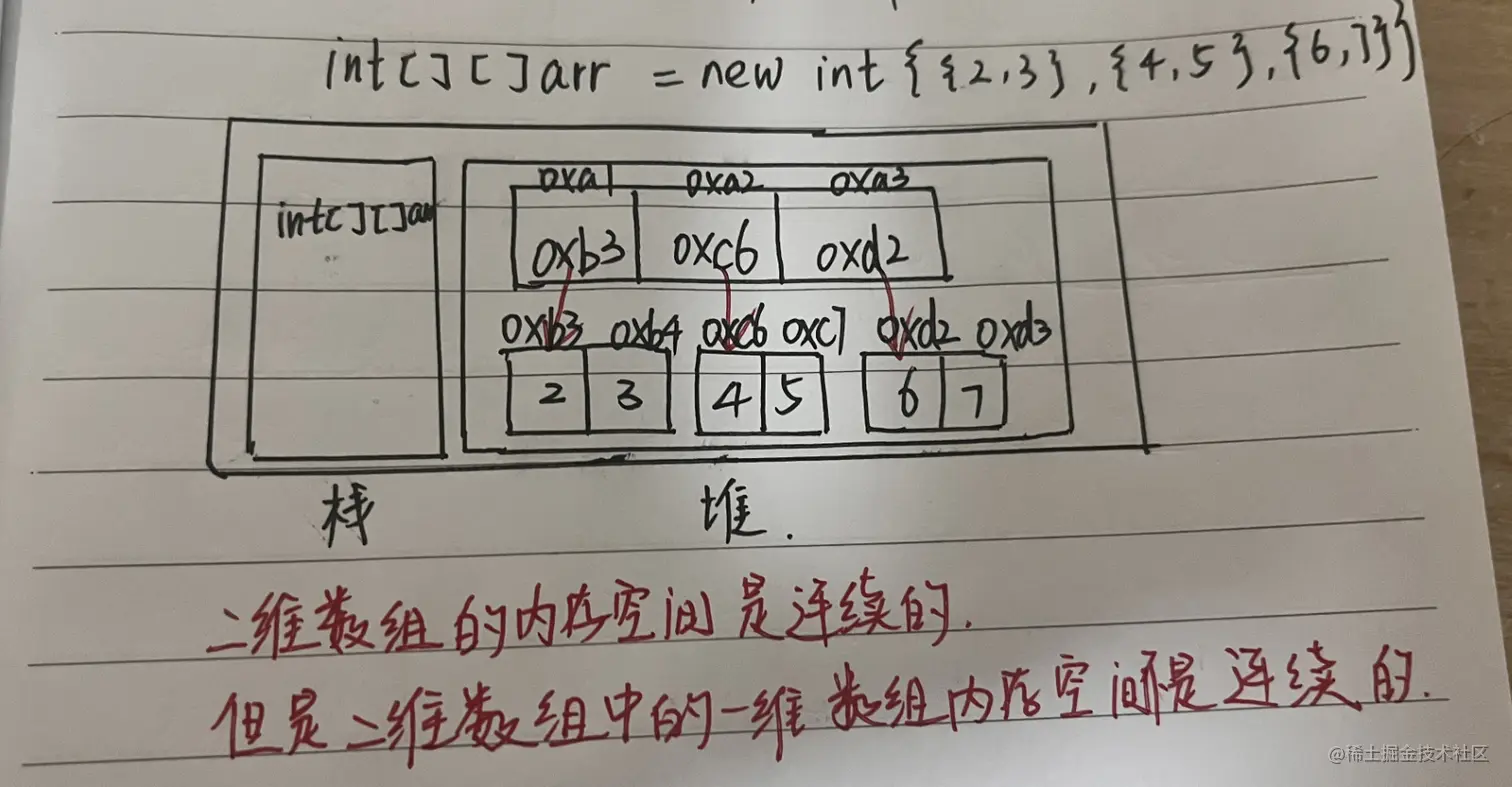 int[][]arr = new int{{2,3},{4,5},{6,7}}
0xa1 0xa2 0xa3
int[][]arr
0xb3 0xc6 0xd2
0xb3 0xb4 0xc6 0xc7 0xd2 0xd3
2 3 4 5 6 7
栈 堆.
二维数组的内存空间是连续的.
但是二维数组中的一维数组内存空间不是连续的.
@稀土掘金技术社区